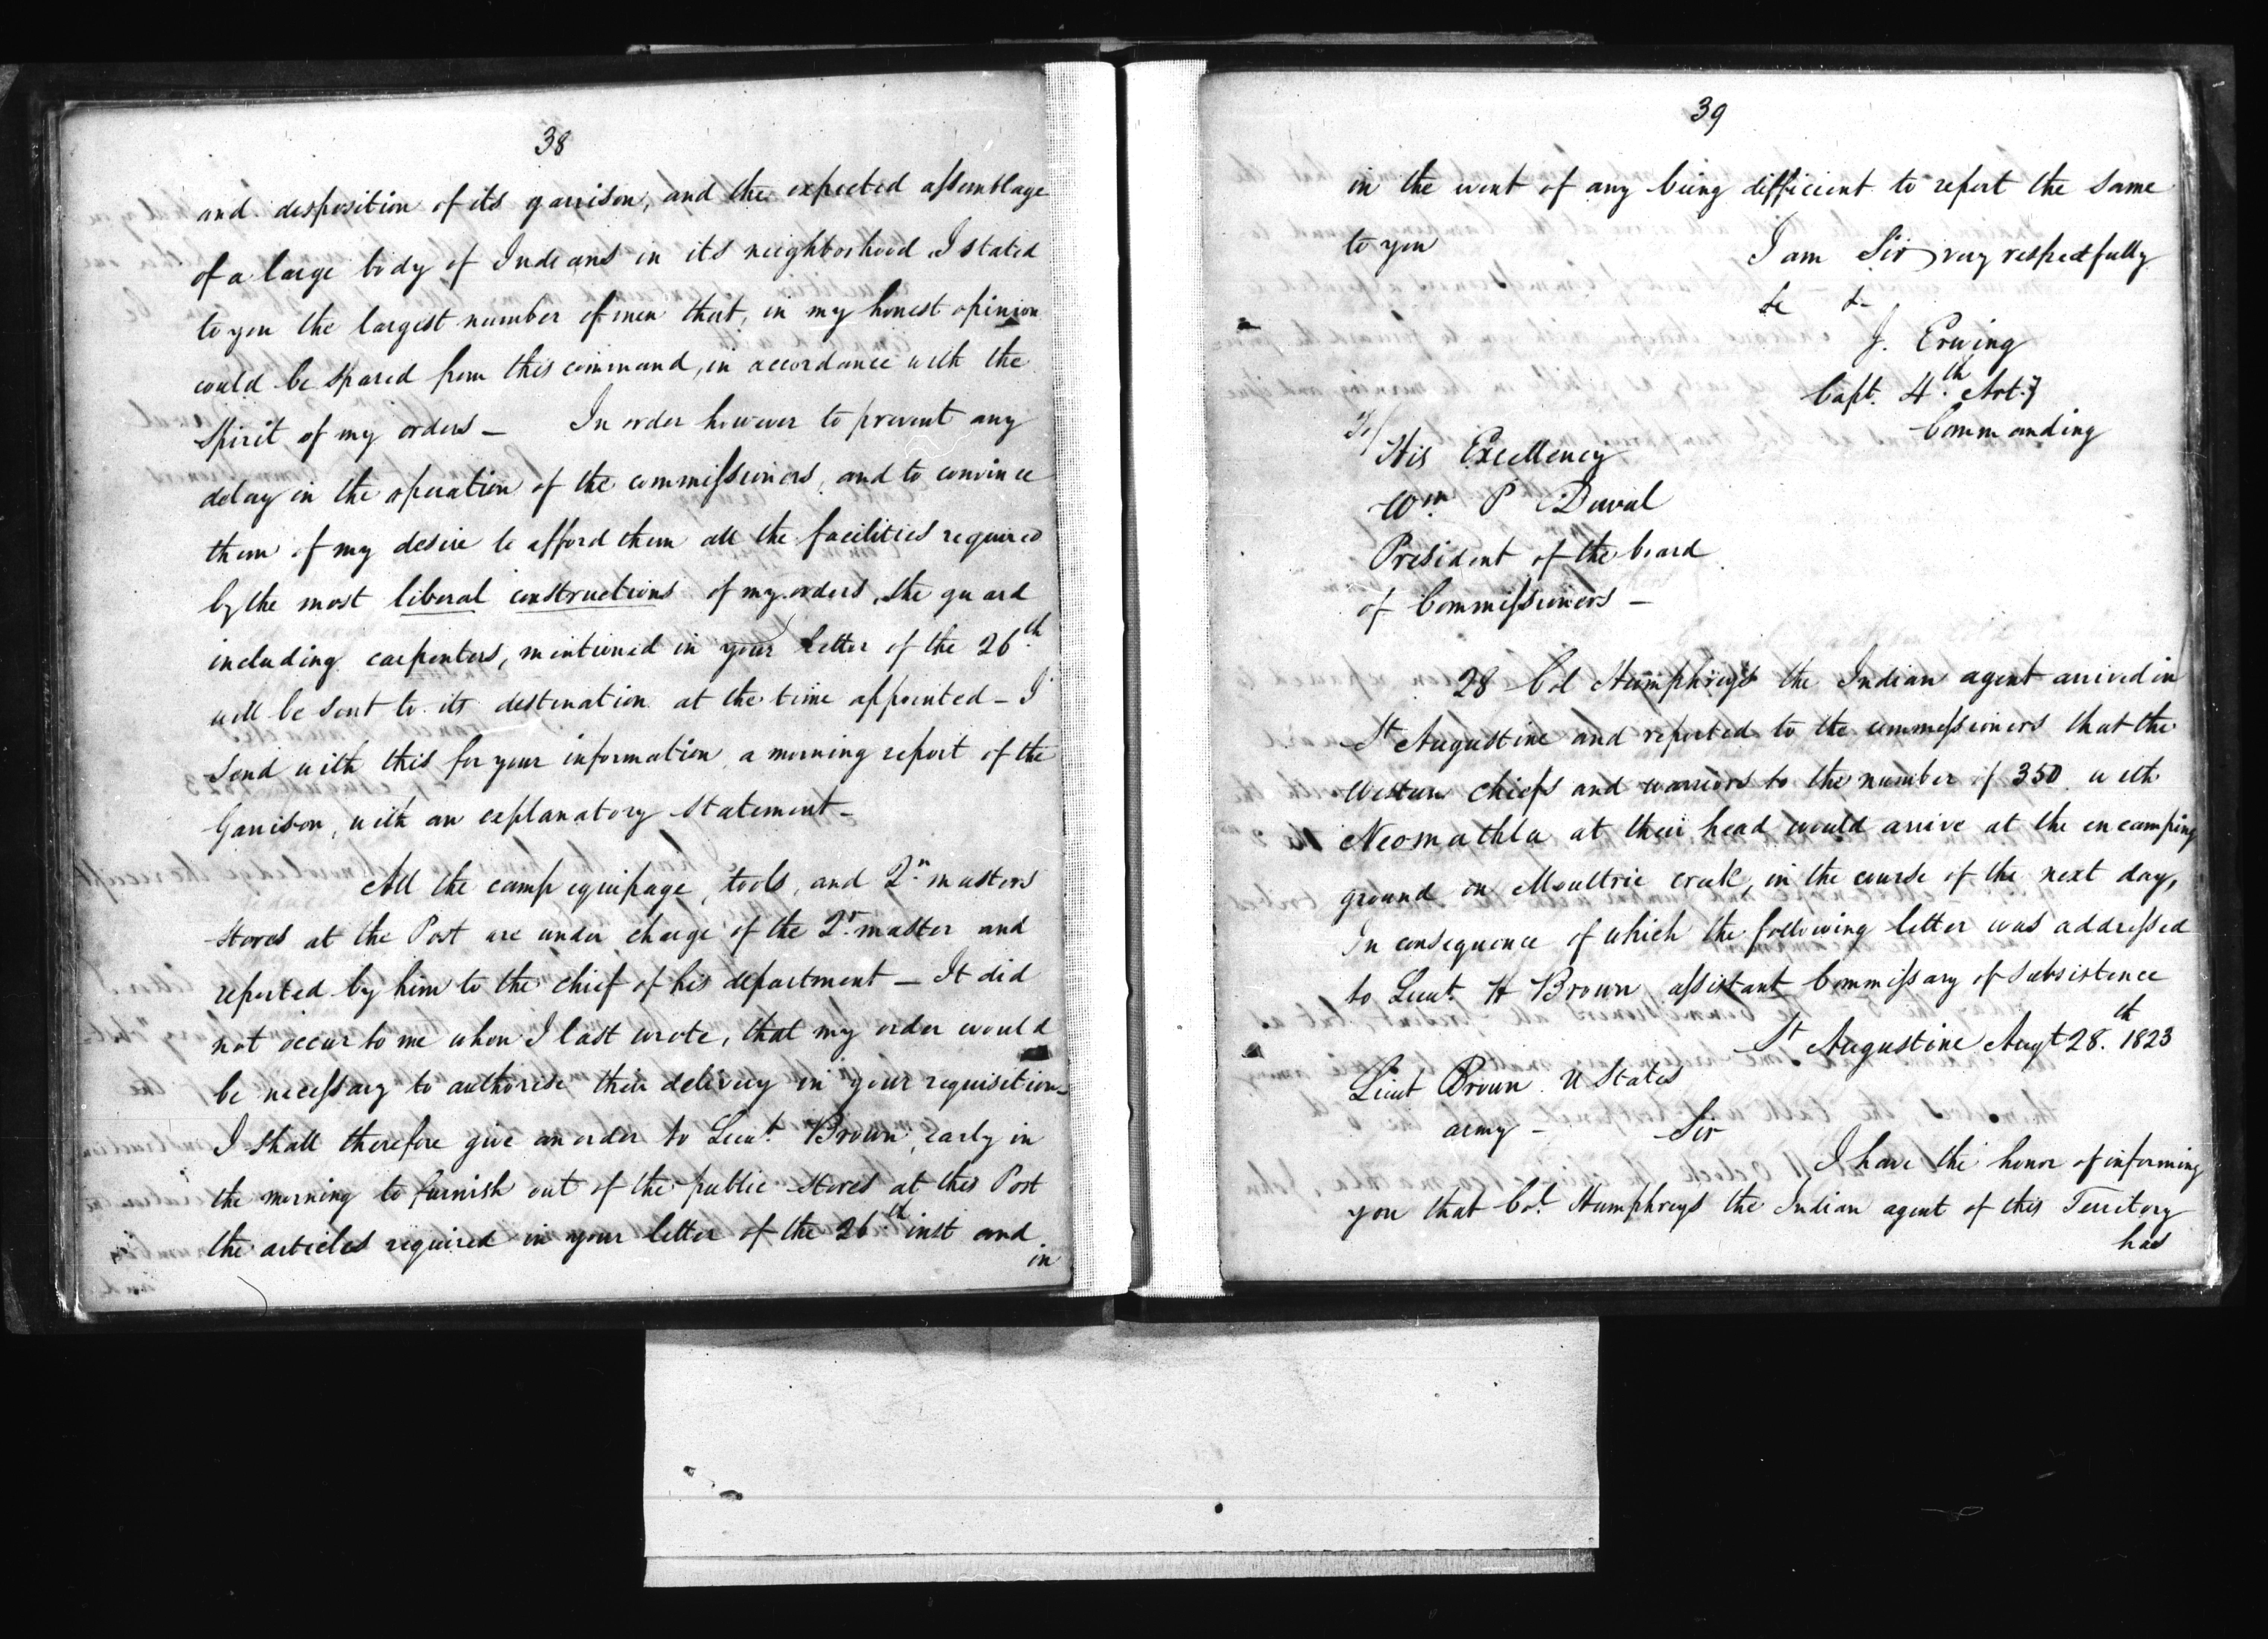 38
and desposition of its garrison, and the expected assemblage
of a large body of Indians in its neighborhood I stated
to you the largest number of men that, in my honest opinion
could be spared from this command, in accordance with the
spirit of my orders — In order however to prevent any
delay in the operation of the commissioners, and to convince
them of my desire to afford them all the facilities required
by the most liberal constructions of my orders, the guard
including carpenters, mentioned in your letter of the 26th
will be sent to its destination at the time appointed — I
send with this for your information a morning report of the
Garrison, with an explanatory statement —
All the camp equipage, tools, and Qr masters
stores at the Post are under charge of the Qr. master and
reported by him to the chief of his department — It did
not occur to me when I last wrote, that my order would
be necessary to authorise their delivery in your requisition —
I shall therefore give an order to Lieut. Brown, early in
the morning to furnish out of the public stores at this Post
the articles required in your letter of the 26th inst and
in
39
in the event of any being difficient to report the same
to you I am Sir very respectfully
&c &-
J. Erving
Capt. 4th Arty
Commanding
To/
His Excellency
Wm P Duval
President of the board
of Commissioners —
28 Col Humphreys the Indian agent arrived in
St Augustine and reported to the commissioners that the
Western chiefs and warriors to the number of 350 with
Neomathla at their head would arrive at the encamping
ground on Moultrie creek, in the course of the next day,
In consequence of which the following letter was addressed
to Lieut. H Brown, assistant Commissary of Subsistence
St Augustine Augt 28. 1823
Lieut Brown U States
army — Sir
I have the honor of informing
you that Col. Humphreys the Indian agent of this Territory
has